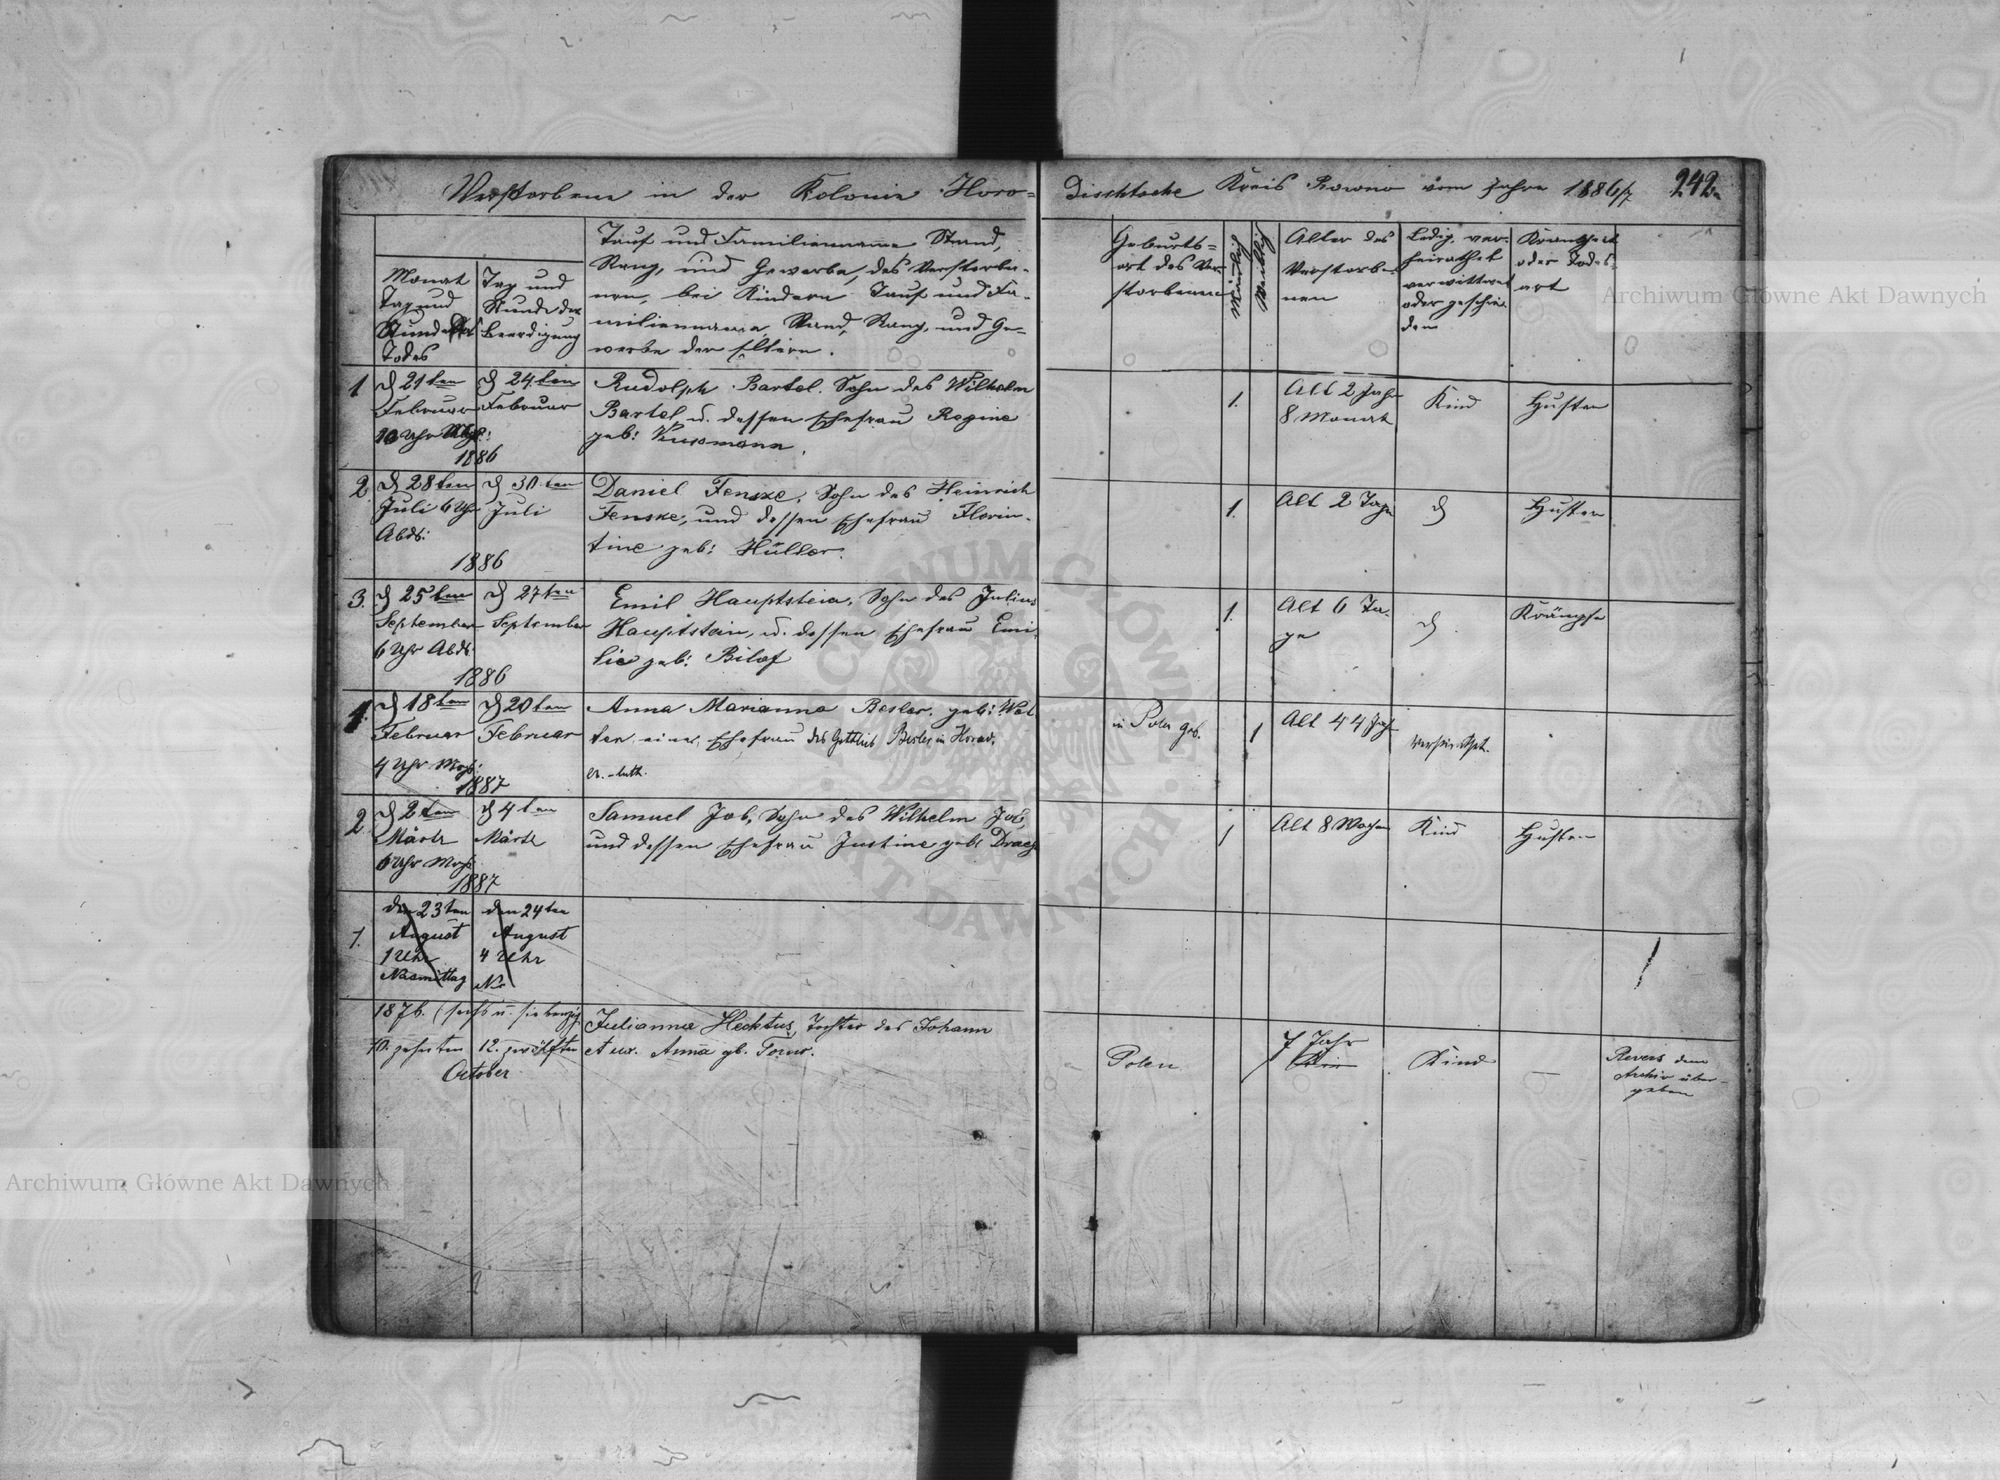 Verstorbene in der Kolonie Horo=
dischtsche Kreis Rowno vom Jahre 1886/7
242
Monat
Tag und
Stunde des
Todes
Tag und
Stunde der
Beerdigung
Tauf und Familienname Stand,
Rang, und Gewerbe, des Verstorbe-
nen, bei Kindern Tauf und Fa-
milienname Stand, Rang, und Ge-
werbe der Eltern.
Geburts=
ort des Ver
storbenen
Männlich
Weiblich
Alter des
Verstorbe-
nen
Ledig, ver-
heirathet
verwittwet
oder geschie-
den
Krankheit
oder Todes-
art
1
d 21ten
Februar
10 Uhr Mgs:
d 24ten
Februar
1886
Rudolph Bartel. Sohn des Wilhelm
Bartel u. dessen Ehefrau Regine
geb:
1.
Alt 2 Jahr
8 Monat
Kind
Husten
2
d 28ten
Juli 6 Uhr
Abds:
d 30ten
Juli
1886
Daniel Fenske, Sohn des Heinrich
Fenske, und dessen Ehefrau Florin-
tine geb: Hüller.
1.
Alt 2 Tage
d
Husten
3.
d 25ten
September
6 Uhr Abds:
d 27ten
September
1886
Emil Hauptstein, Sohn des Julius
Hauptstein, u. dessen Ehefrau Emi-
lie geb:
1.
Alt 6 Ta-
ge
d
Krämpfe
1.
d 18ten
Februar
4 Uhr Mgs:
d 20ten
Februar
1887
Anna Marianna Besler. geb: Wol
ter eine Ehefrau des Gottlieb Besler in Horod.
ev.-luth.
in Polen geb.
1
Alt 44 Jahr
verheirathet.
2
d 2ten
März
6 Uhr Mgs
d 4ten
März
1887
Samuel Job, Sohn des Wilhelm Job,
und dessen Ehefrau Justine geb:
1
Alt 8 Wochen
Kind
Husten
1.
den 23ten
August
1 Uhr
Nachmittag
den 24ten
August
4 Uhr
1876. (sechs u. siebenzig
10. zehnten
12. zwölften
October
Julianna Hecktus, Tochter des Johann
et ux. Anna gb.
Polen
1
7 Jahr
Kind
—
Revers dem
Archiv über-
geben
Archiwum Główne Akt Dawnych
Archiwum Główne Akt Dawnych
ARCHIWUM GŁÓWNE
AKT DAWNYCH